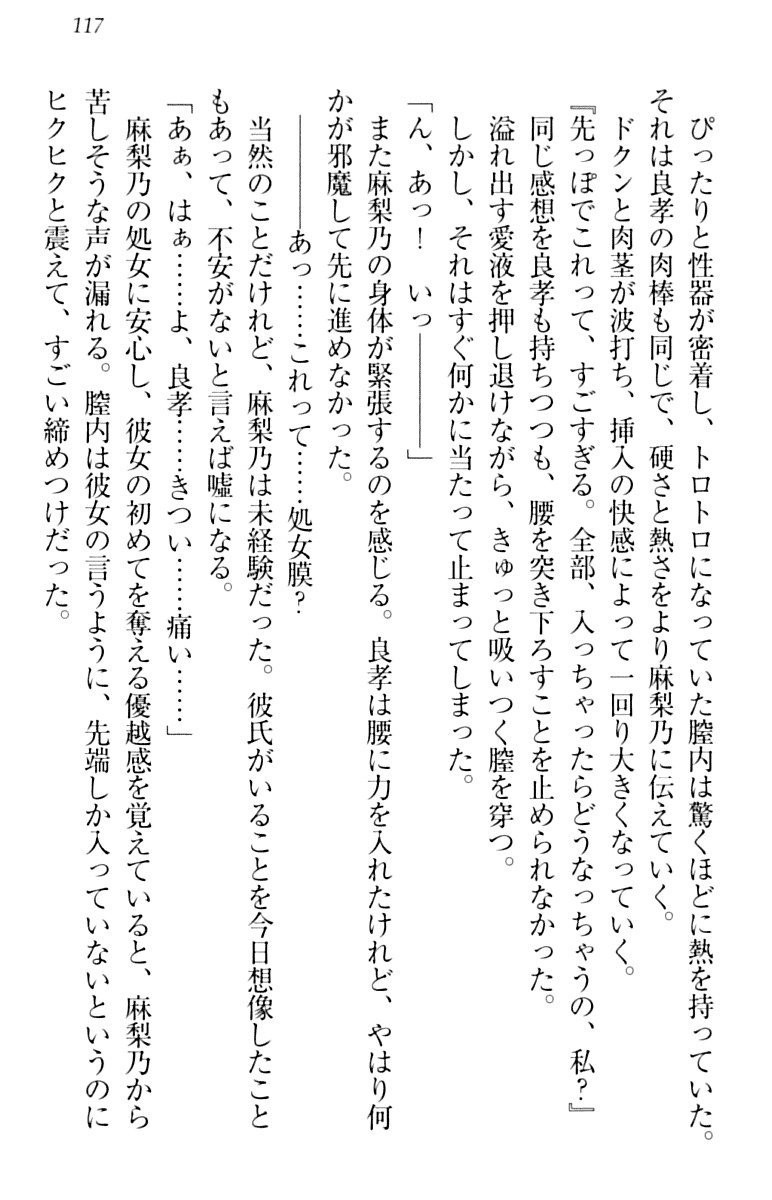 117
ぴったりと性器が密着し、トロトロになっていた膣内は驚くほどに熱を持っていた。
それは良孝の肉棒も同じで、硬さと熱さをより麻梨乃に伝えていく。
ドクンと肉茎が波打ち、挿入の快感によって一回り大きくなっていく。
『先っぽでこれって、すごすぎる。全部、入っちゃったらどうなっちゃうの、私?』
同じ感想を良孝も持ちつつも、腰を突き下ろすことを止められなかった。
溢れ出す愛液を押し退けながら、きゅっと吸いつく膣を穿つ。
しかし、それはすぐ何かに当たって止まってしまった。
「ん、あっ! いっ――――」
また麻梨乃の身体が緊張するのを感じる。良孝は腰に力を入れたけれど、やはり何
かが邪魔して先に進めなかった。
――――あっ……これって……処女膜?
当然のことだけれど、麻梨乃は未経験だった。彼氏がいることを今日想像したこと
もあって、不安がないと言えば嘘になる。
「あぁ、はぁ……よ、良孝……きつい……痛い……」
麻梨乃の処女に安心し、彼女の初めてを奪える優越感を覚えていると、麻梨乃から
苦しそうな声が漏れる。膣内は彼女の言うように、先端しか入っていないというのに
ヒクヒクと震えて、すごい締めつけだった。